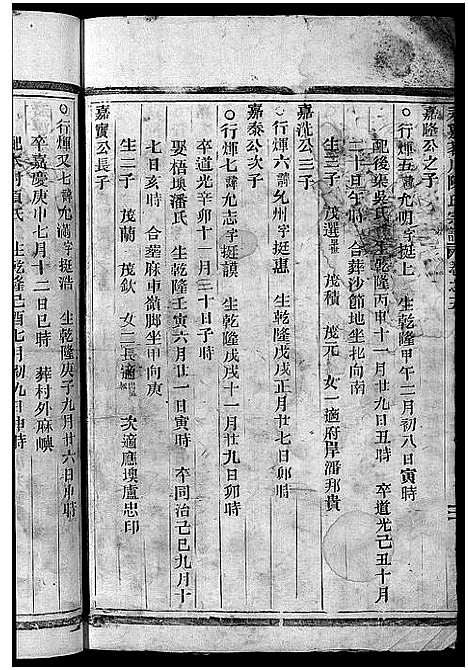 嘉隆公之子
○行煇五諱允明字挺上　生乾隆甲午二月初八日寅時
配後渠吳氏　生乾隆丙申十一月廿九日丑時　卒道光己丑十月
二十日午時　合葬沙節地坐北向南
生三子　茂選　茂積　茂元　女一適府岸潘邦貴
嘉洗公三子
○行煇六諱允州字挺惠　生乾隆戊戌正月廿七日卯時
嘉泰公次子
○行煇七諱允志字挺謨　生乾隆戊戌十一月廿九日卯時
卒道光辛卯十一月三十日子時
娶梧墺潘氏　生乾隆壬寅六月廿一日寅時　卒同治己巳九月十
七日亥時　合墓麻車嶺脚坐甲向庚
生二子　茂蘭　茂欽　女二長適　次適應墺盧忠印
嘉寶公長子
○行煇又七諱允滿字挺浩　生乾隆庚子九月廿六日申時
卒嘉慶庚申七月十二日巳時　葬村外麻嶼
生乾隆己酉七月初九日申時